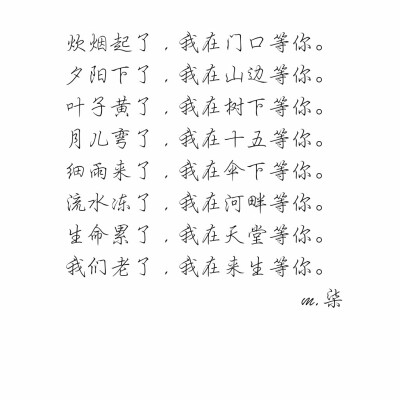 炊烟起了，我在门口等你。
夕阳下了，我在山边等你。
叶子黄了，我在树下等你。
月儿弯了，我在十五等你。
细雨来了，我在伞下等你。
流水冻了，我在河畔等你。
生命累了，我在天堂等你。
我们老了，我在来生等你。
m.柒